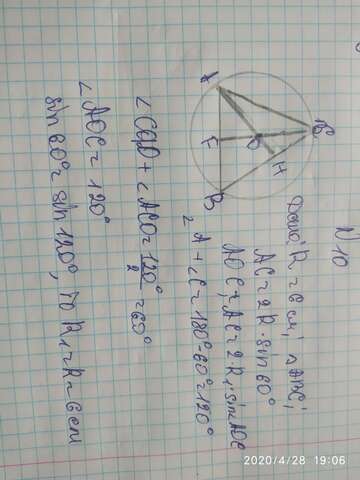 N10
Дано: R = 6 см; △ABC;
AC = 2R · sin 60°
AOC; AC = 2 · R₁ · sin AOC
∠A + ∠C = 180° - 60° = 120°
∠CAO + ∠ACO = 120°/2 = 60°
∠AOC = 120°
sin 60° = sin 120°, то R₁ = R = 6 см
A
C
F
O
H
B
2020/4/28 19:06